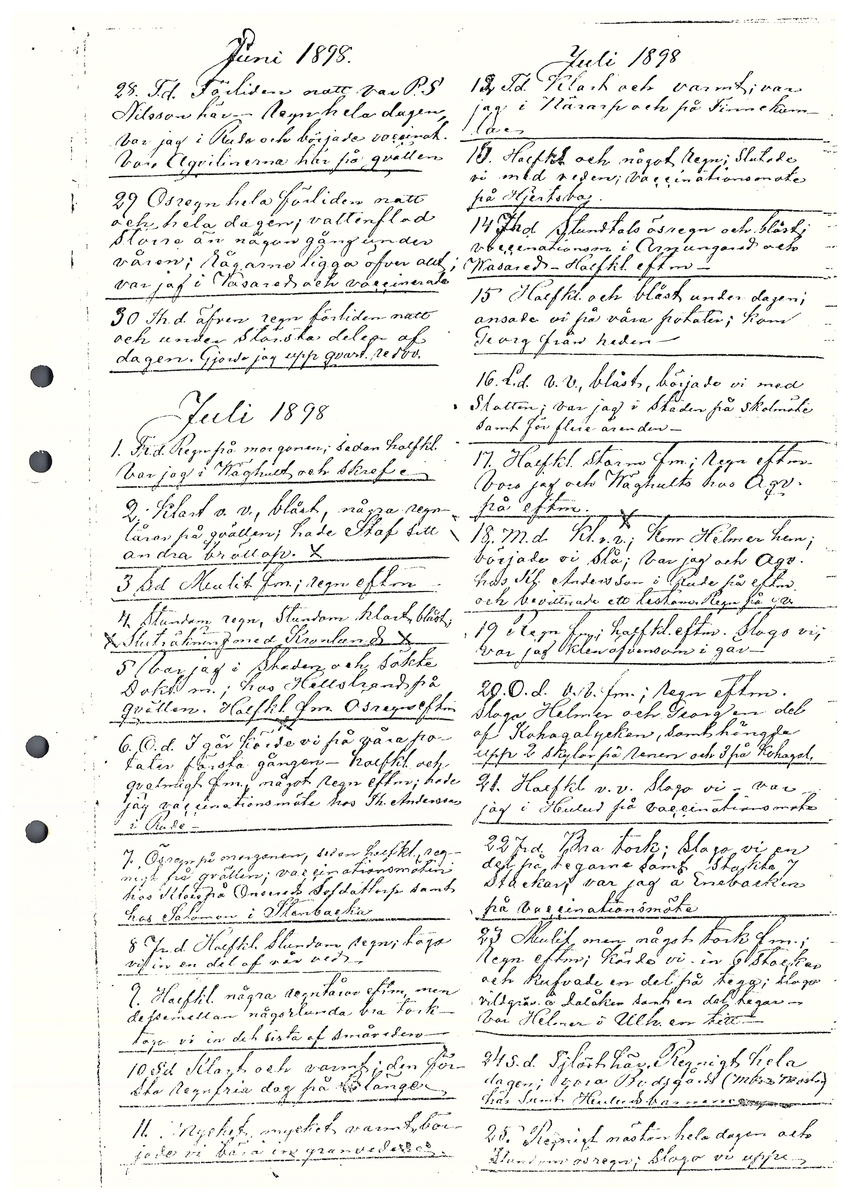 Juni 1898.
28. Td. Förliden natt var P.S
Nilsson här – Regn hela dagen,
var jag i Rude och började vaccinat.
Voro Agvilinerna här på qvällen
29 Ösregn hela förliden natt
och hela dagen; vattenflod
större än någon gång under
våren; Rågarne ligga öfver allt;
var jag i Wasared och vaccinerade
30 Th.d. äfven regn förliden natt
och under största delen af
dagen. Gjorde jag upp qvart. redov.
Juli 1898
1. Frd. Regn på morgonen; sedan halfkl.
Var jag i Wäghult och Skrefe
2. Klart v. v., blåst, några regn-
tårar på qvällen; hade Staf sitt
andra bröllop. X
3 Sd Mulit fm.; regn eftm
4. Stundom regn, Stundom klart, blåst;
X Sluträkning med Kronlund X
5 Var jag i Staden och sökte
Dokt m.; hos Hellstrands på
qvällen. Halfkl fm. Osregn eftm
X
6. O.d. I går körde vi på våra po-
tater första gången – halfkl och
qvalmigt fm, något regn eftm; hade
jag vaccinationsmöte hos Th. Andersson
i Rude –
7. Ösregn på morgonen, sedan halfkl, reg-
nigt på qvällen; vaccinationsmöten
hos Klas på Onsered Soldattorp samt
hos Salomon i Stenbacka
8 Fr.d Halfkl. Stundom regn; togo
vi in en del af vår ved
9. Halfkl några regntårar eftm, men
dessemellan någorlunda bra tork –
togo vi in det sista af småveden
10 Sd Klart och varmt; den för-
sta regnfria dag på länge
11. Mycket, mycket varmt, bör-
jade vi bära in granveden
Juli 1898
12 Td. Klart och varmt; var
jag i Närarp och på Finnekum-
13. Halfkl och något regn; Slutade
vi med veden; Vaccinationsmöte
på Hjertsbo
14 Thd Stundtals ösregn och blåst;
vaccinationsm i Armungared och
Wasared – Halfkl. eftm –
15 Halfkl. och blåst under dagen;
ansade vi på våra potater; kom
Georg från heden –
16. L.d. v. v., blåst, började vi med
Slåtten; var jag i Staden på Skolmöte
samt för flere ärenden –
17. Halfkl. Starm fm; regn eftm
Voro jag och Wäghults hos Agv.
på eftm.
X
18. M.d Kl.v.v; Kom Helmer hem;
började vi Slå; Var jag och Agv.
hos Kl. Andersson i Rude på eftm
och bevittnade ett testam. Regn på qv.
19 Regn fm; halfkl. eftm. Slogo vi;
var jag klen äfvensom i går –
20. O.d. v.v. fm.; regn eftm.
Sloga Helmer och Georg en del
af Kohagalyckan, samt hängde
upp 2 skylar på renen och 3 på Kohagal.
21. Halfkl v.v. Slogo vi – var
jag i Hulud på vaccinationsmöte
22 Frd. Bra tork; Slogo vi en
del på tegarne samt Stackte 7
Stackar; var jag å Enebacken
på Vaccinationsmöte
23 Mulit men något tork fm.;
Regn eftm; körde vi in 6 Stackar
och kufvade en del på tega; slogo
vildgräs å Dalåker samt en del tegar –
Var Helmer i Ulh. en titt –
24 S.d. Tjlöst här. Regnigt hela
dagen; voro Brodsgårds
här samt Huluds barnen
25. Regnigt nästan hela dagen och
Stundom osregn; Slogo vi uppe